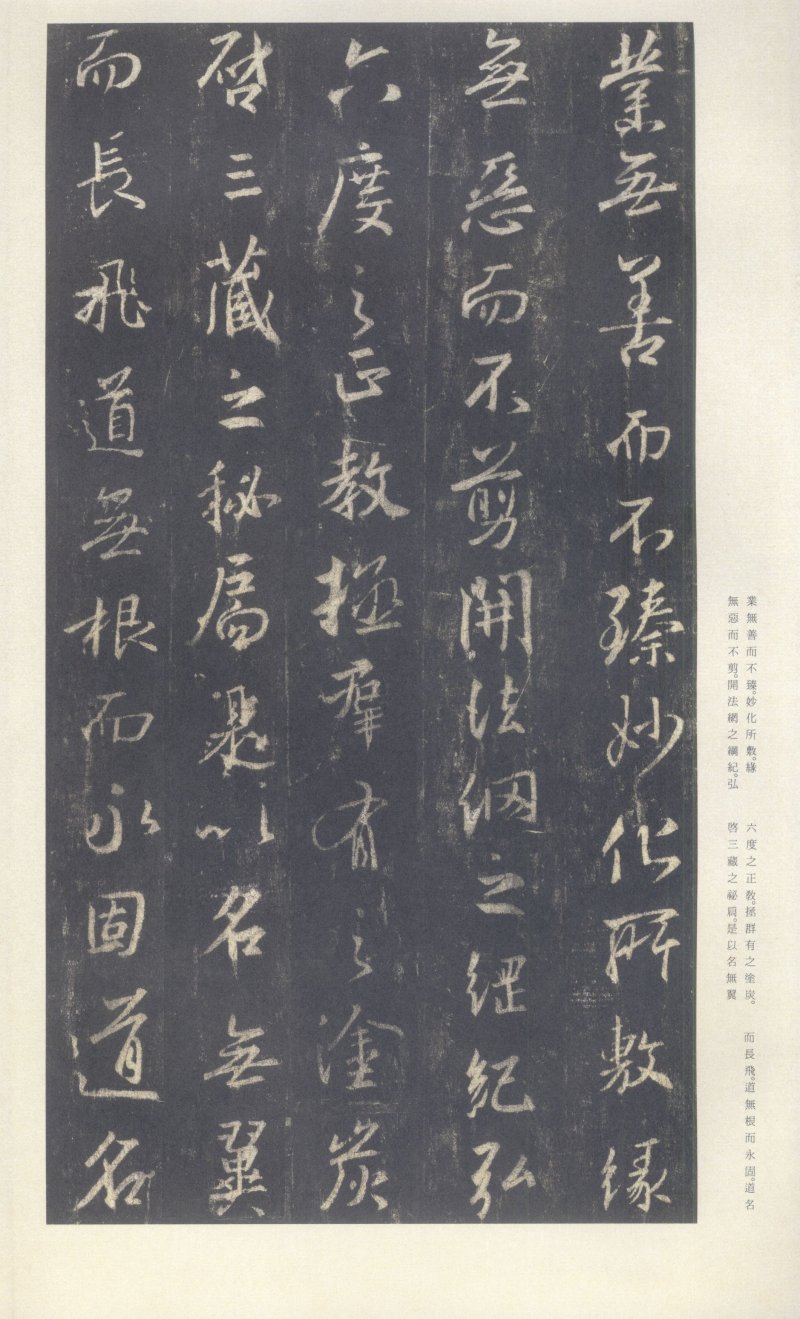 業無善而不臻妙化所敷緣
無惡而不剪開法網之綱紀弘
六度之正教拯群有之塗炭
啓三藏之秘扃是以名無翼
而長飛道無根而永固道名
業無善而不臻。妙化所敷。緣
無惡而不剪。開法網之綱紀。弘
六度之正教。拯群有之塗炭。
啓三藏之祕扃。是以名無翼
而長飛。道無根而永固。道名